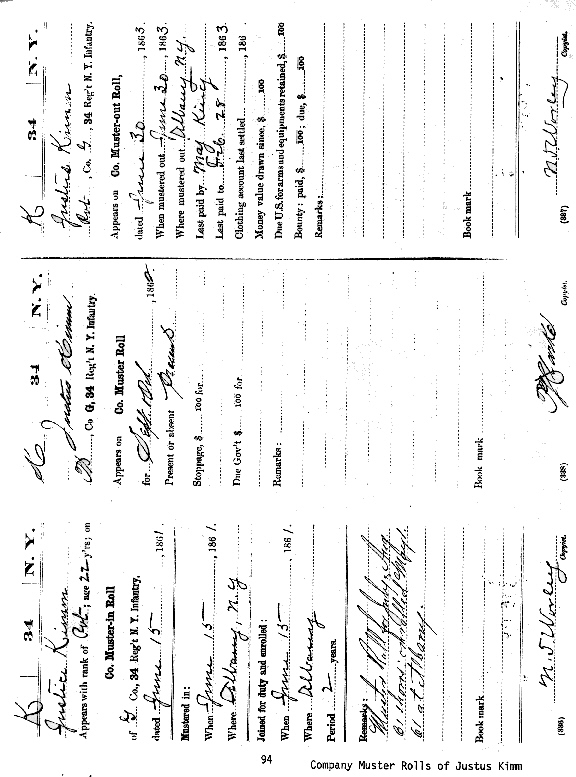 K | 34 | N. Y.
Justice Kimm
Appears with rank of Pvt.; age 22 y'rs; on
Co. Muster-in Roll
of G Co., 34 Reg't N. Y. Infantry,
dated June 15, 1861.
Mustered in:
When June 15, 1861.
Where Albany, N.Y
Joined for duty and enrolled:
When June 15, 1861.
Where Albany
Period 2 years.
Remarks: Muster Roll
61 at Albany.
Book mark
(386) N. J. Worley Copyist.
K | 34 | N. Y.
Justus Kimm
Co G, 34 Reg't N. Y. Infantry.
Appears on Co. Muster Roll
for Sept & Oct, 186
Present or absent Present
Stoppage, $ 100 for
Due Gov't $ 100 for
Remarks:
Book mark
(388) Copyist.
K | 34 | N. Y.
Justus Kimm
Pvt., Co. G, 34 Reg't N. Y. Infantry.
Appears on Co. Muster-out Roll,
dated June 30, 1863.
When mustered out June 30, 1863.
Where mustered out Albany N.Y.
Last paid by Maj King
Last paid to Feb. 28, 1863.
Clothing account last settled, 186
Money value drawn since, $ 100
Due U.S. for arms and equipments retained, $ 100
Bounty: paid, $ 100; due, $ 100
Remarks:
Book mark
(387) N. J. Worley Copyist.
94
Company Muster Rolls of Justus Kimm